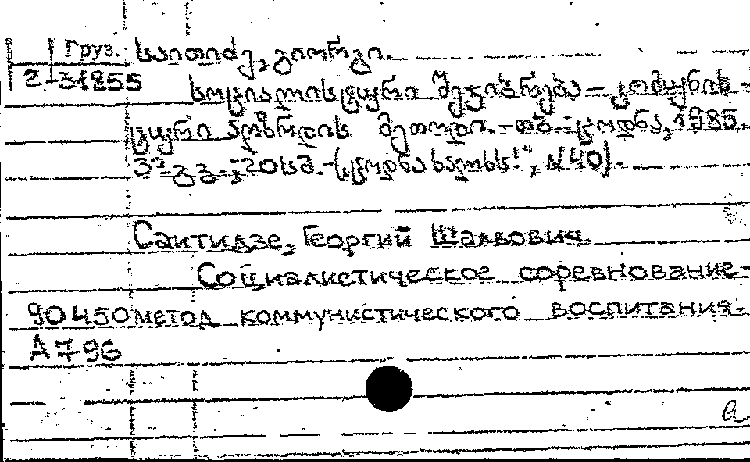 Груз. საითიძე, გიორგი.
2-31855
სოციალისტური შეჯიბრება – კომუნის-
ტური აღზრდის მეთოდი. – თბ.: ცოდნა, 1985.
20 სმ. – (სცოდნა", №40).
Саитидзе, Георгий Шалвович.
Социалистическое соревнование-
90450 метод коммунистического воспитания.
А796